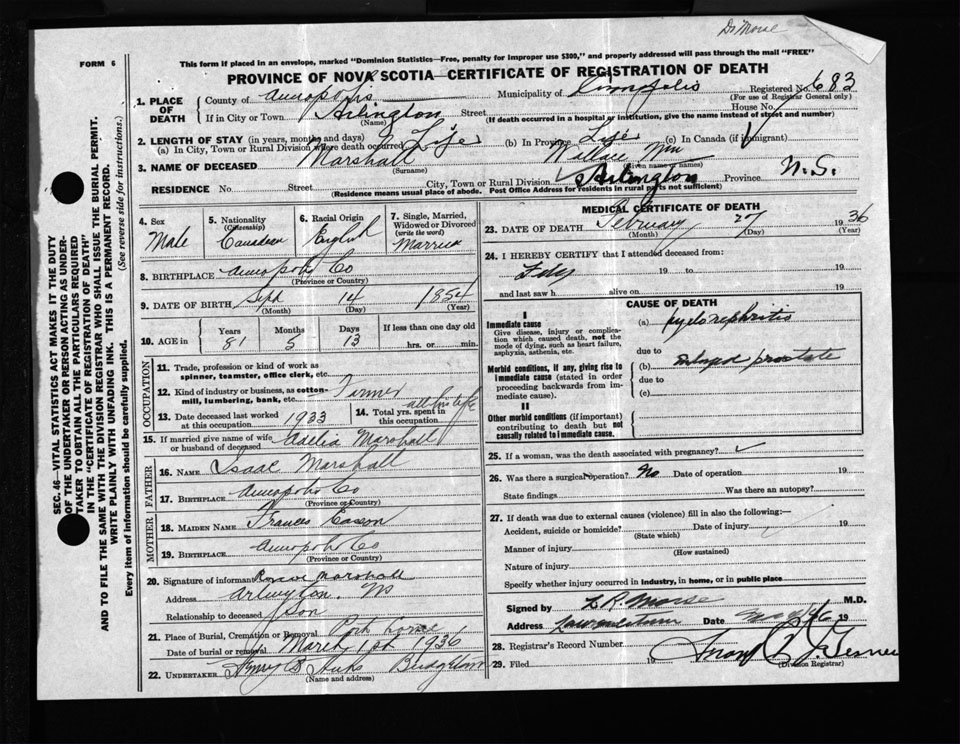 Dr Morse
FORM 6
This form if placed in an envelope, marked "Dominion Statistics—Free, penalty for improper use $300," and properly addressed will pass through the mail "FREE"
PROVINCE OF NOVA SCOTIA—CERTIFICATE OF REGISTRATION OF DEATH
Registered No. 683
(For use of Registrar General only)
1. PLACE OF DEATH
County of Annapolis Municipality of Annapolis
If in City or Town Arlington Street House No.
(Name) (If death occurred in a hospital or institution, give the name instead of street and number)
2. LENGTH OF STAY (in years, months and days)
(a) In City, Town or Rural Division where death occurred Life (b) In Province Life (c) In Canada (if immigrant)
3. NAME OF DECEASED Marshall Wallace Wm
(Surname) (Given name or names)
RESIDENCE No. Street City, Town or Rural Division Arlington Province N.S.
(Residence means usual place of abode. Post Office Address for residents in rural parts not sufficient)
4. Sex Male
5. Nationality (Citizenship) Canadian
6. Racial Origin English
7. Single, Married, Widowed or Divorced (write the word) Married
8. BIRTHPLACE Annapolis Co
(Province or Country)
9. DATE OF BIRTH Sept 14 1854
(Month) (Day) (Year)
10. AGE in Years Months Days If less than one day old
81 5 13 hrs. or min.
OCCUPATION
11. Trade, profession or kind of work as spinner, teamster, office clerk, etc.
12. Kind of industry or business, as cotton-mill, lumbering, bank, etc. Farmer
13. Date deceased last worked at this occupation 1933
14. Total yrs. spent in this occupation all his life
15. If married give name of wife or husband of deceased Adelia Marshall
FATHER
16. NAME Isaac Marshall
17. BIRTHPLACE Annapolis Co
(Province or Country)
MOTHER
18. MAIDEN NAME Frances
19. BIRTHPLACE Annapolis Co
(Province or Country)
20. Signature of informant Marshall
Address Arlington. NS
Relationship to deceased Son
21. Place of Burial, Cremation or Removal Port Lorne
Date of burial or removal March 1st 1936
22. UNDERTAKER Bridgetown
(Name and address)
MEDICAL CERTIFICATE OF DEATH
23. DATE OF DEATH February 27 1936
(Month) (Day) (Year)
24. I HEREBY CERTIFY that I attended deceased from:
19 to 19
and last saw h alive on 19
CAUSE OF DEATH
I
Immediate cause
Give disease, injury or complication which caused death, not the mode of dying, such as heart failure, asphyxia, asthenia, etc.
(a) pyelonephritis
due to
Morbid conditions, if any, giving rise to immediate cause (stated in order proceeding backwards from immediate cause).
(b) enlarged prostate
due to
(c)
II
Other morbid conditions (if important) contributing to death but not causally related to immediate cause.
25. If a woman, was the death associated with pregnancy?
26. Was there a surgical operation? No Date of operation 19
State findings Was there an autopsy?
27. If death was due to external causes (violence) fill in also the following:—
Accident, suicide or homicide? Date of injury 19
(State which)
Manner of injury
(How sustained)
Nature of injury
Specify whether injury occurred in industry, in home, or in public place
Signed by L R Morse M.D.
Address Lawrencetown Date 19
28. Registrar's Record Number
29. Filed 19
(Division Registrar)
SEC. 46—VITAL STATISTICS ACT MAKES IT THE DUTY
OF THE UNDERTAKER OR PERSON ACTING AS UNDER-
TAKER TO OBTAIN ALL THE PARTICULARS REQUIRED
IN THE "CERTIFICATE OF REGISTRATION OF DEATH"
AND TO FILE THE SAME WITH THE DIVISION REGISTRAR WHO SHALL ISSUE THE BURIAL PERMIT.
WRITE PLAINLY WITH UNFADING INK. THIS IS A PERMANENT RECORD.
Every item of information should be carefully supplied. (See reverse side for instructions.)